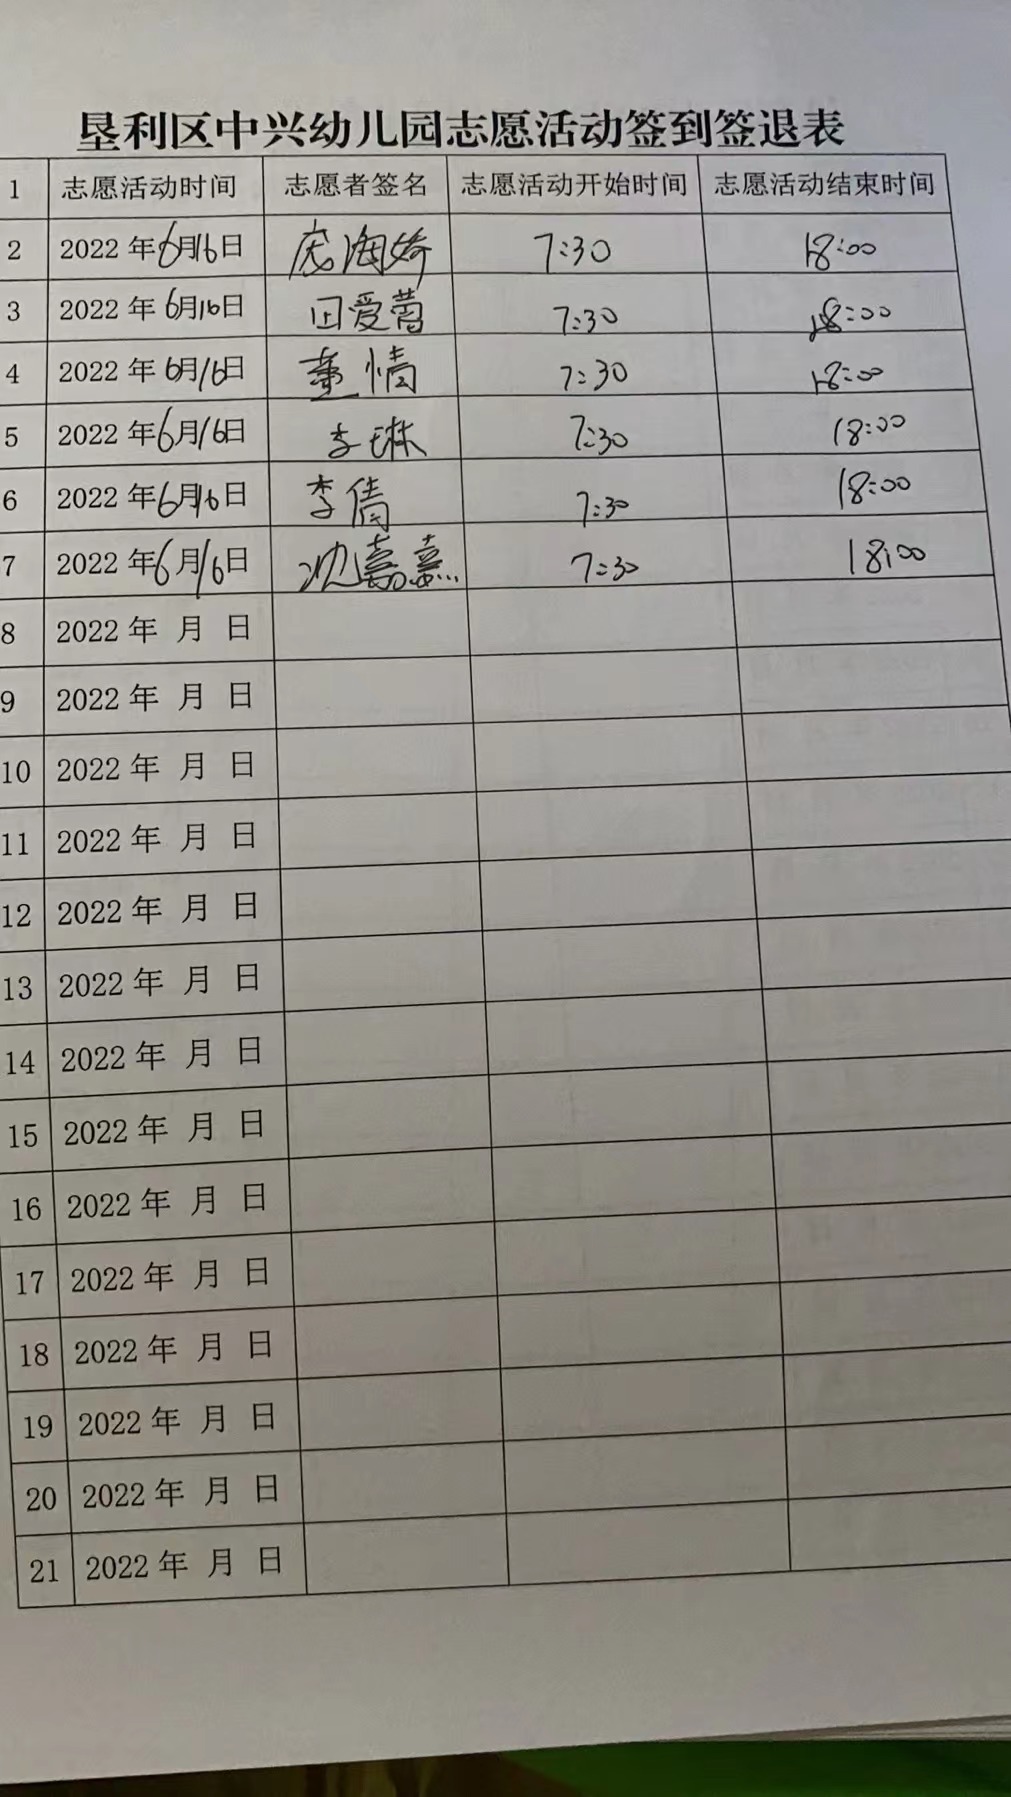 垦利区中兴幼儿园志愿活动签到签退表
1 志愿活动时间 志愿者签名 志愿活动开始时间 志愿活动结束时间
2 2022年6月16日 7:30 18:00
3 2022年6月16日 田爱蓉 7:30 18:00
4 2022年6月16日 董情 7:30 18:00
5 2022年6月16日 李琳 7:30 18:00
6 2022年6月16日 李倩 7:30 18:00
7 2022年6月16日 沈嘉熹 7:30 18:00
8 2022年 月 日
9 2022年 月 日
10 2022年 月 日
11 2022年 月 日
12 2022年 月 日
13 2022年 月 日
14 2022年 月 日
15 2022年 月 日
16 2022年 月 日
17 2022年 月 日
18 2022年 月 日
19 2022年 月 日
20 2022年 月 日
21 2022年 月 日